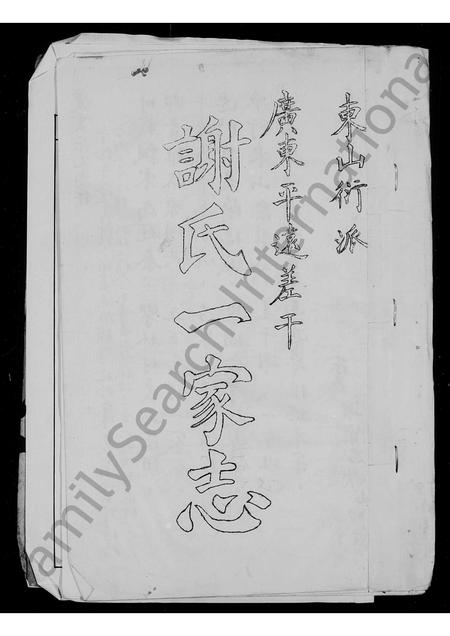 東山衍派
廣東平遠差干
謝氏一家志
FamilySearch International